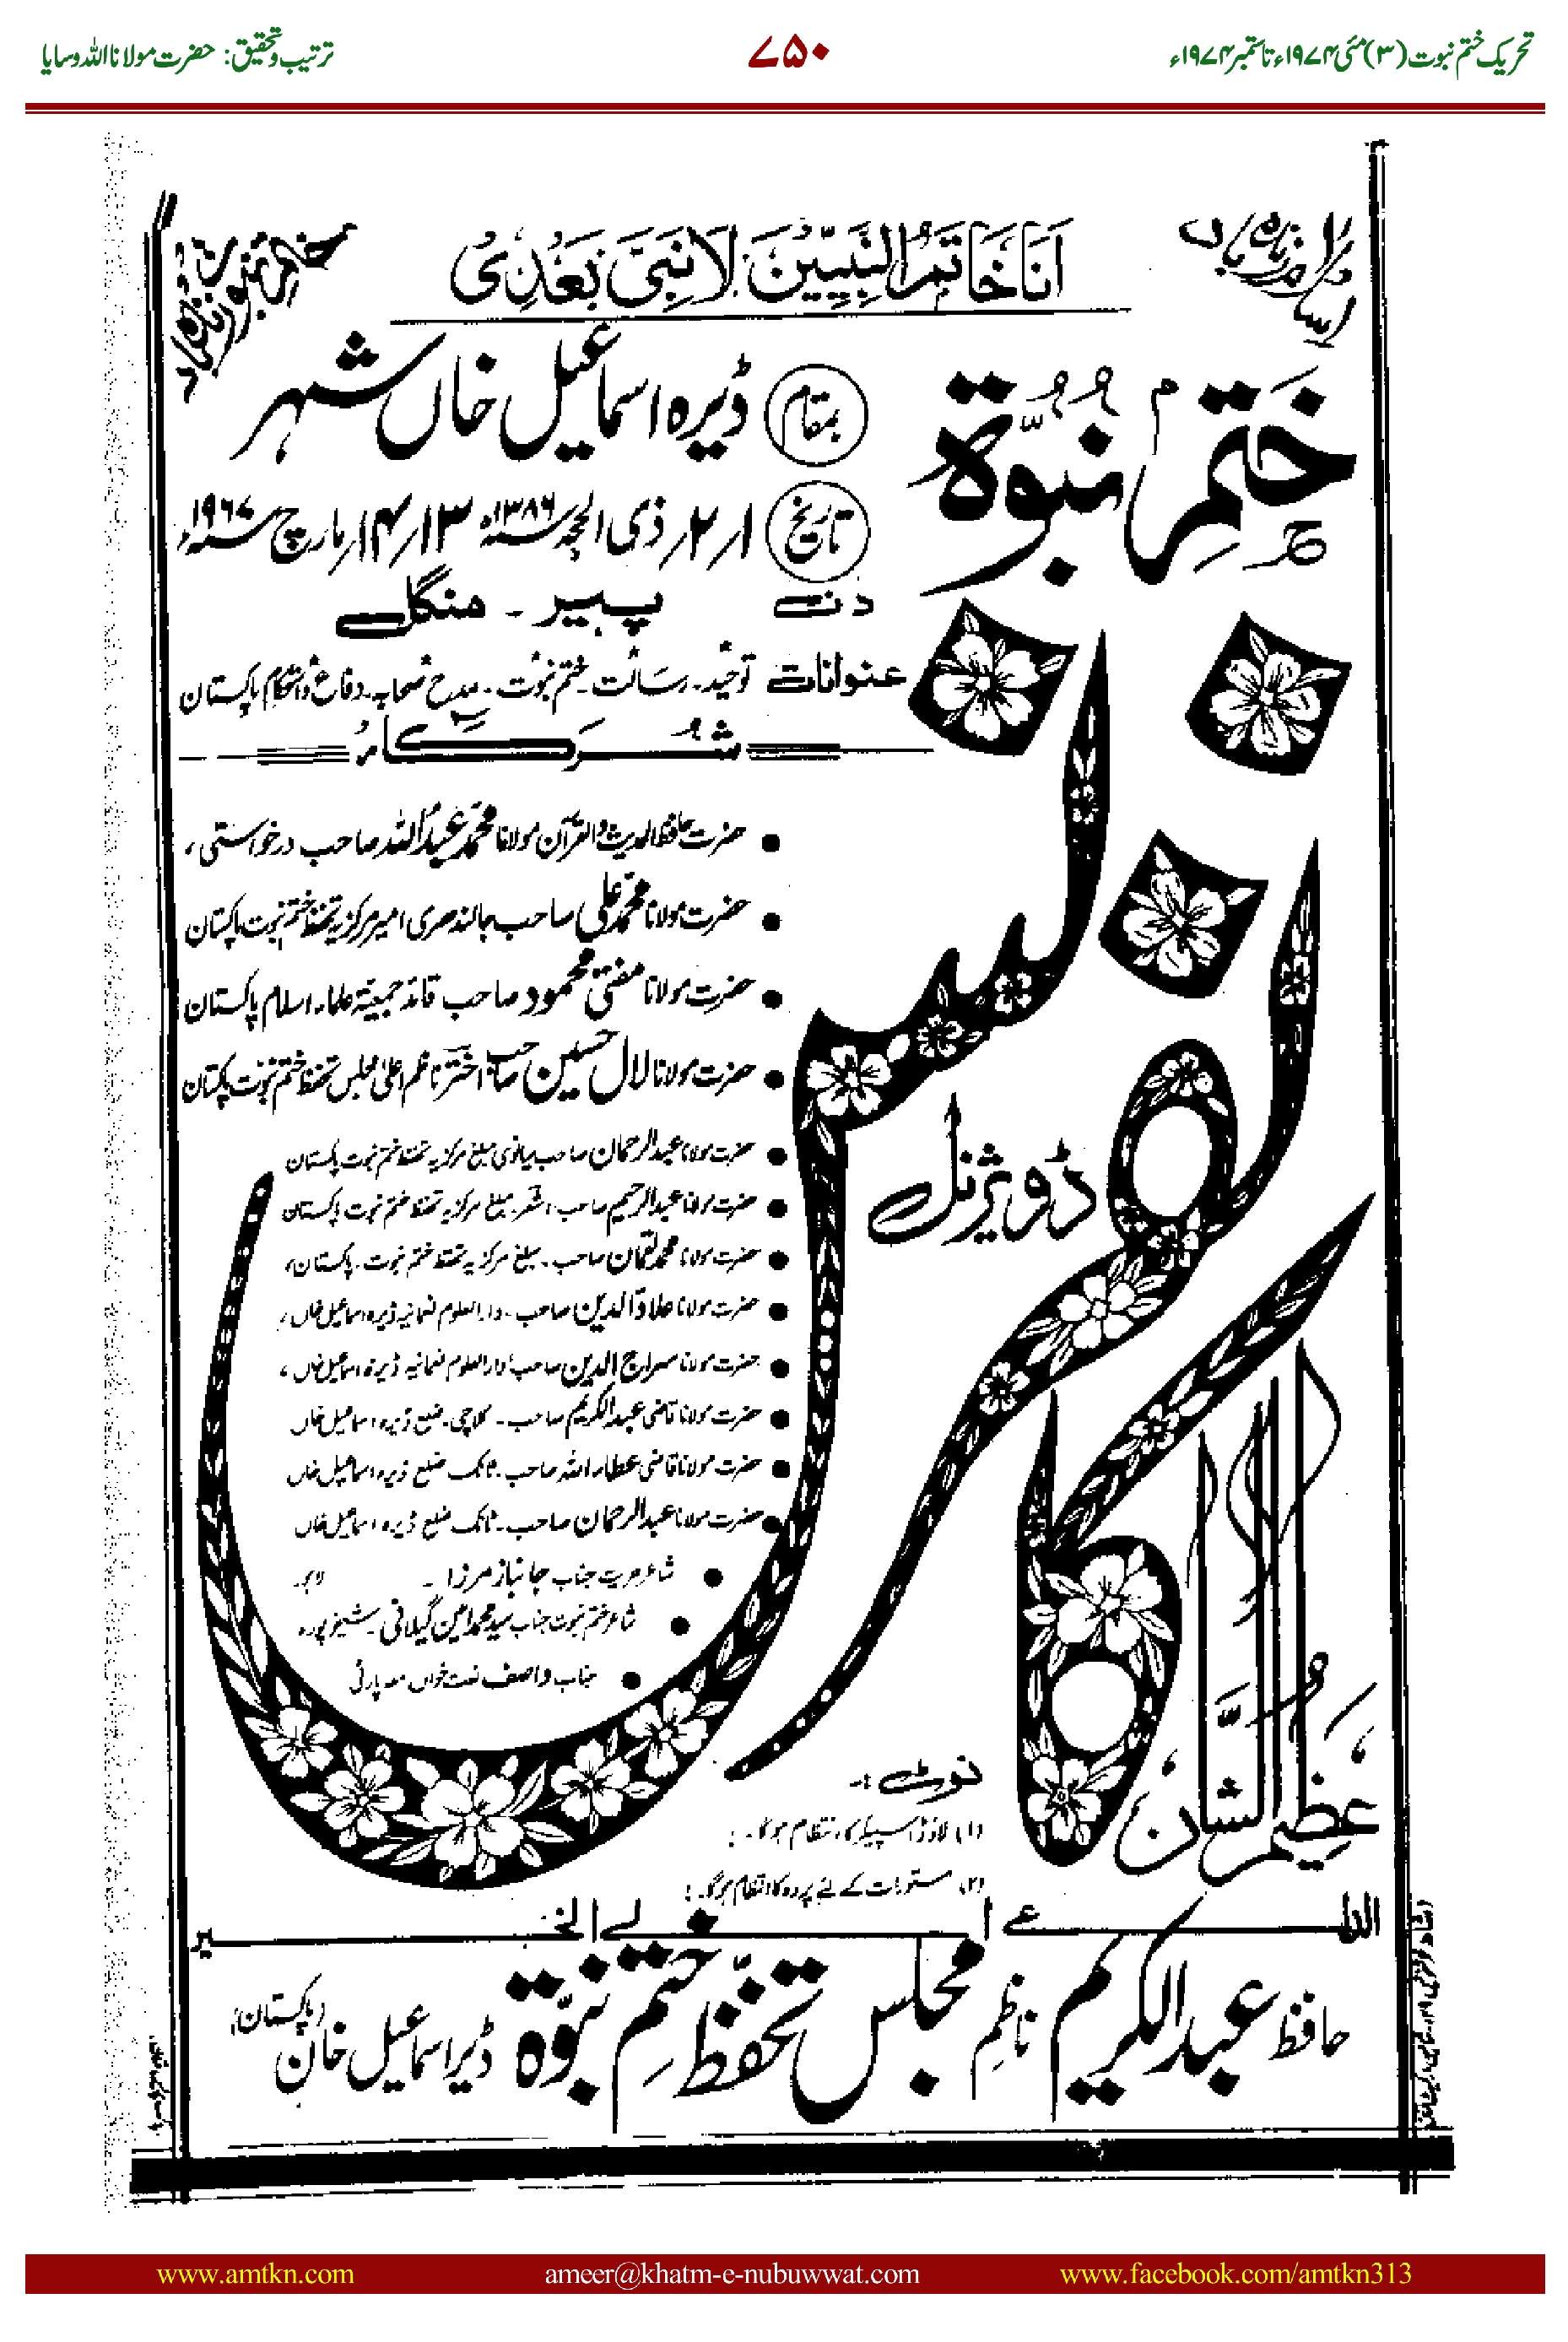 تحریک ختم نبوت (۳) مئی ۱۹۷۴ء تا ستمبر ۱۹۷۴ء
۷۵۰
ترتیب و تحقیق: حضرت مولانا اللہ وسایا
اسلام زندہ باد
اَنَا خَاتَمُ النَّبِیّٖنَ لَا نَبِیَّ بَعْدِیْ
ختم نبوت زندہ باد
ختمِ نبوّۃ
بمقام ڈیرہ اسماعیل خاں شہر
تاریخ ۱ر ۲ر ذی الحجہ سنہ ۱۳۸۶ھ ۱۳ر ۱۴ر مارچ سنہ ۱۹۶۷ء
دن پیر ۔ منگل
عنوانات توحید ۔ رسالت ۔ ختم نبوت ۔ مدح صحابہ ۔ دفاع و استحکام پاکستان
شرکاء
• حضرت حافظ الحدیث والقرآن مولانا محمد عبداللہ صاحب درخواستی،
• حضرت مولانا محمد علی صاحب جالندھری امیر مرکزیہ تحفظ ختم نبوت پاکستان
• حضرت مولانا مفتی محمود صاحب قائد جمعیۃ علماء اسلام پاکستان
• حضرت مولانا لال حسین صاحب اختر ناظم اعلیٰ مجلس تحفظ ختم نبوت پاکستان
• حضرت مولانا عبدالرحمان صاحب میانوی مبلغ مرکزیہ تحفظ ختم نبوت پاکستان
• حضرت مولانا عبدالرحیم صاحب اشعر مبلغ مرکزیہ تحفظ ختم نبوت پاکستان
• حضرت مولانا محمد لقمان صاحب ۔ مبلغ مرکزیہ تحفظ ختم نبوت ۔ پاکستان،
• حضرت مولانا علاؤالدین صاحب ۔ دارالعلوم نعمانیہ ڈیرہ اسماعیل خاں،
• حضرت مولانا سراج الدین صاحب دارالعلوم نعمانیہ ڈیرہ اسماعیل خاں،
• حضرت مولانا قاضی عبدالکریم صاحب ۔ کلاچی ۔ ضلع ڈیرہ اسماعیل خاں
• حضرت مولانا قاضی عطاء اللہ صاحب ۔ ٹانک ضلع ڈیرہ اسماعیل خاں
• حضرت مولانا عبدالرحمان صاحب ۔ ٹانک ضلع ڈیرہ اسماعیل خاں
• شاعر حریت جناب جانباز مرزا ۔ لاہور
• شاعر ختم نبوت جناب سید محمد امین گیلانی ۔ شیخوپورہ
• جناب واصف نعت خواں معہ پارٹی
عظیم الشان
ڈویژنل
کانفرنس
نوٹ :-
(۱) لاؤڈ اسپیکر کا انتظام ہوگا ۔
(۲) مستورات کے لئے پردہ کا انتظام ہوگا ۔
الداعی الی الخیر
حافظ عبدالکریم ناظم مجلس تحفظ ختمِ نبوّۃ ڈیرہ اسماعیل خان (پاکستان)
www.amtkn.com
ameer@khatm-e-nubuwwat.com
www.facebook.com/amtkn313